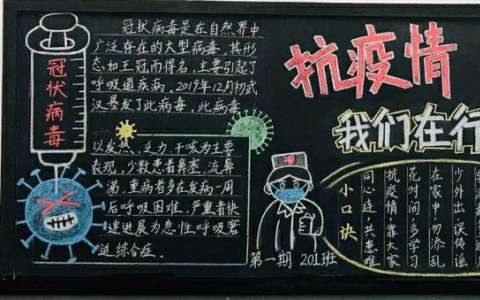 冠状病毒
冠状病毒是在自然界中
广泛存在的大型病毒,其形
态如王冠而得名,主要引起了
呼吸道疾病,2019年12月初武
汉暴发了此病毒,此病毒
以发热、乏力、干咳为主要
表现,少数患者鼻塞,流鼻
涕,重病者多在发病一周
后呼吸困难,严重者快
速进展为急性呼吸窘
迫综合症。
抗疫情
我们在行
小口诀
少外出 误传谣
在家中 勿添乱
花时间 多学习
抗疫情 靠大家
同心连 共患难
第一期 201班